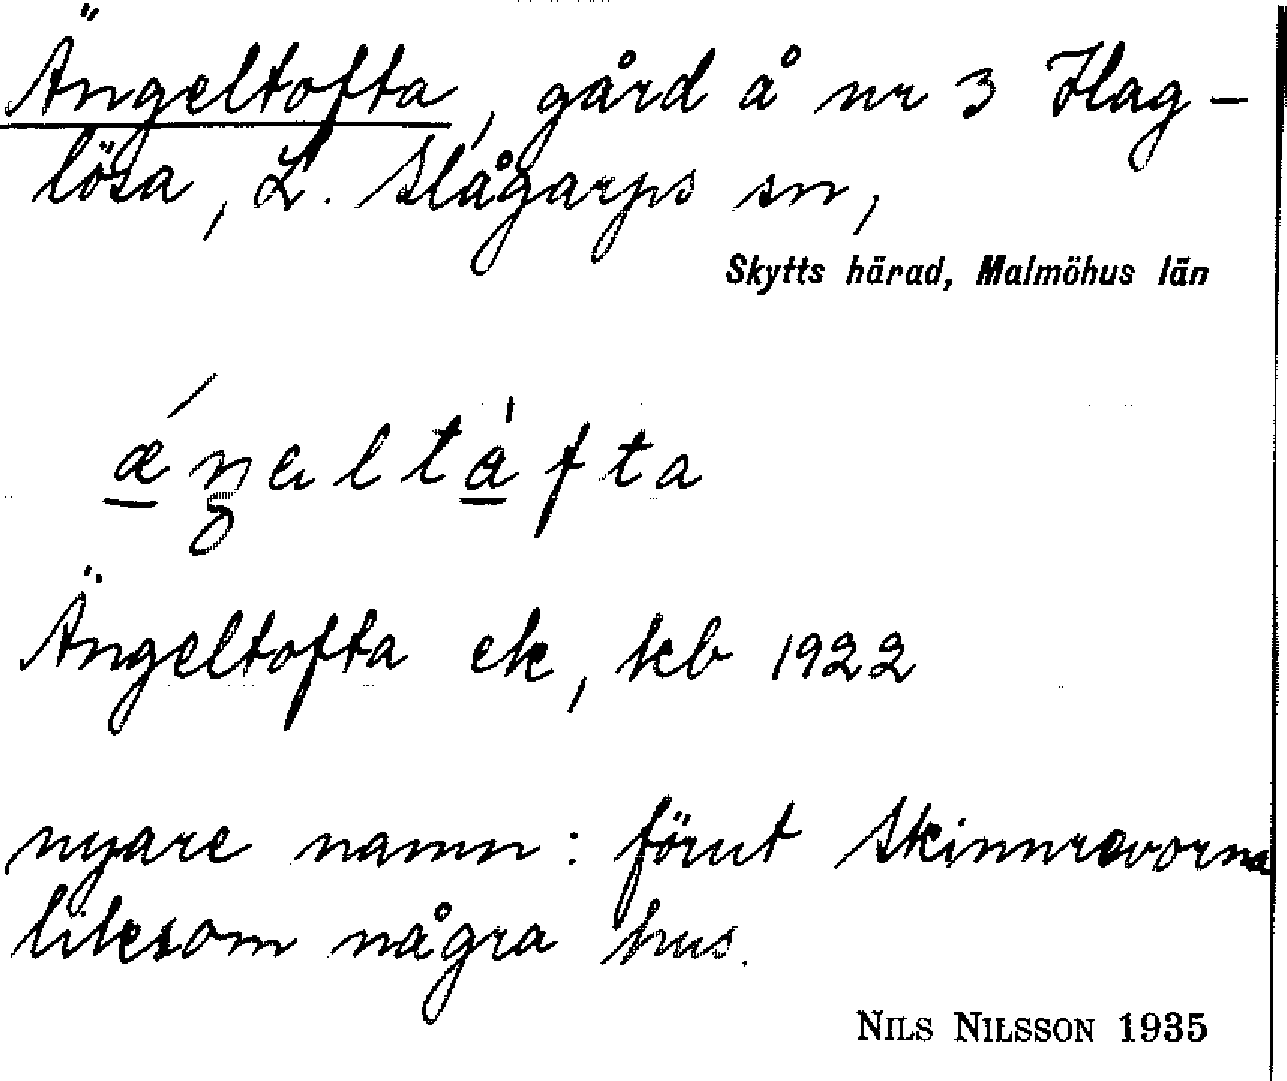 Ängeltofta, gård å nr 3 Hag-
lösa, L. Slågarps sn,
Skytts härad, Malmöhus län
ǽŋəltàfta
Ängeltofta ek, kb 1922
nyare namn: förut Skinnravorna
liksom några hus.
NILS NILSSON 1935